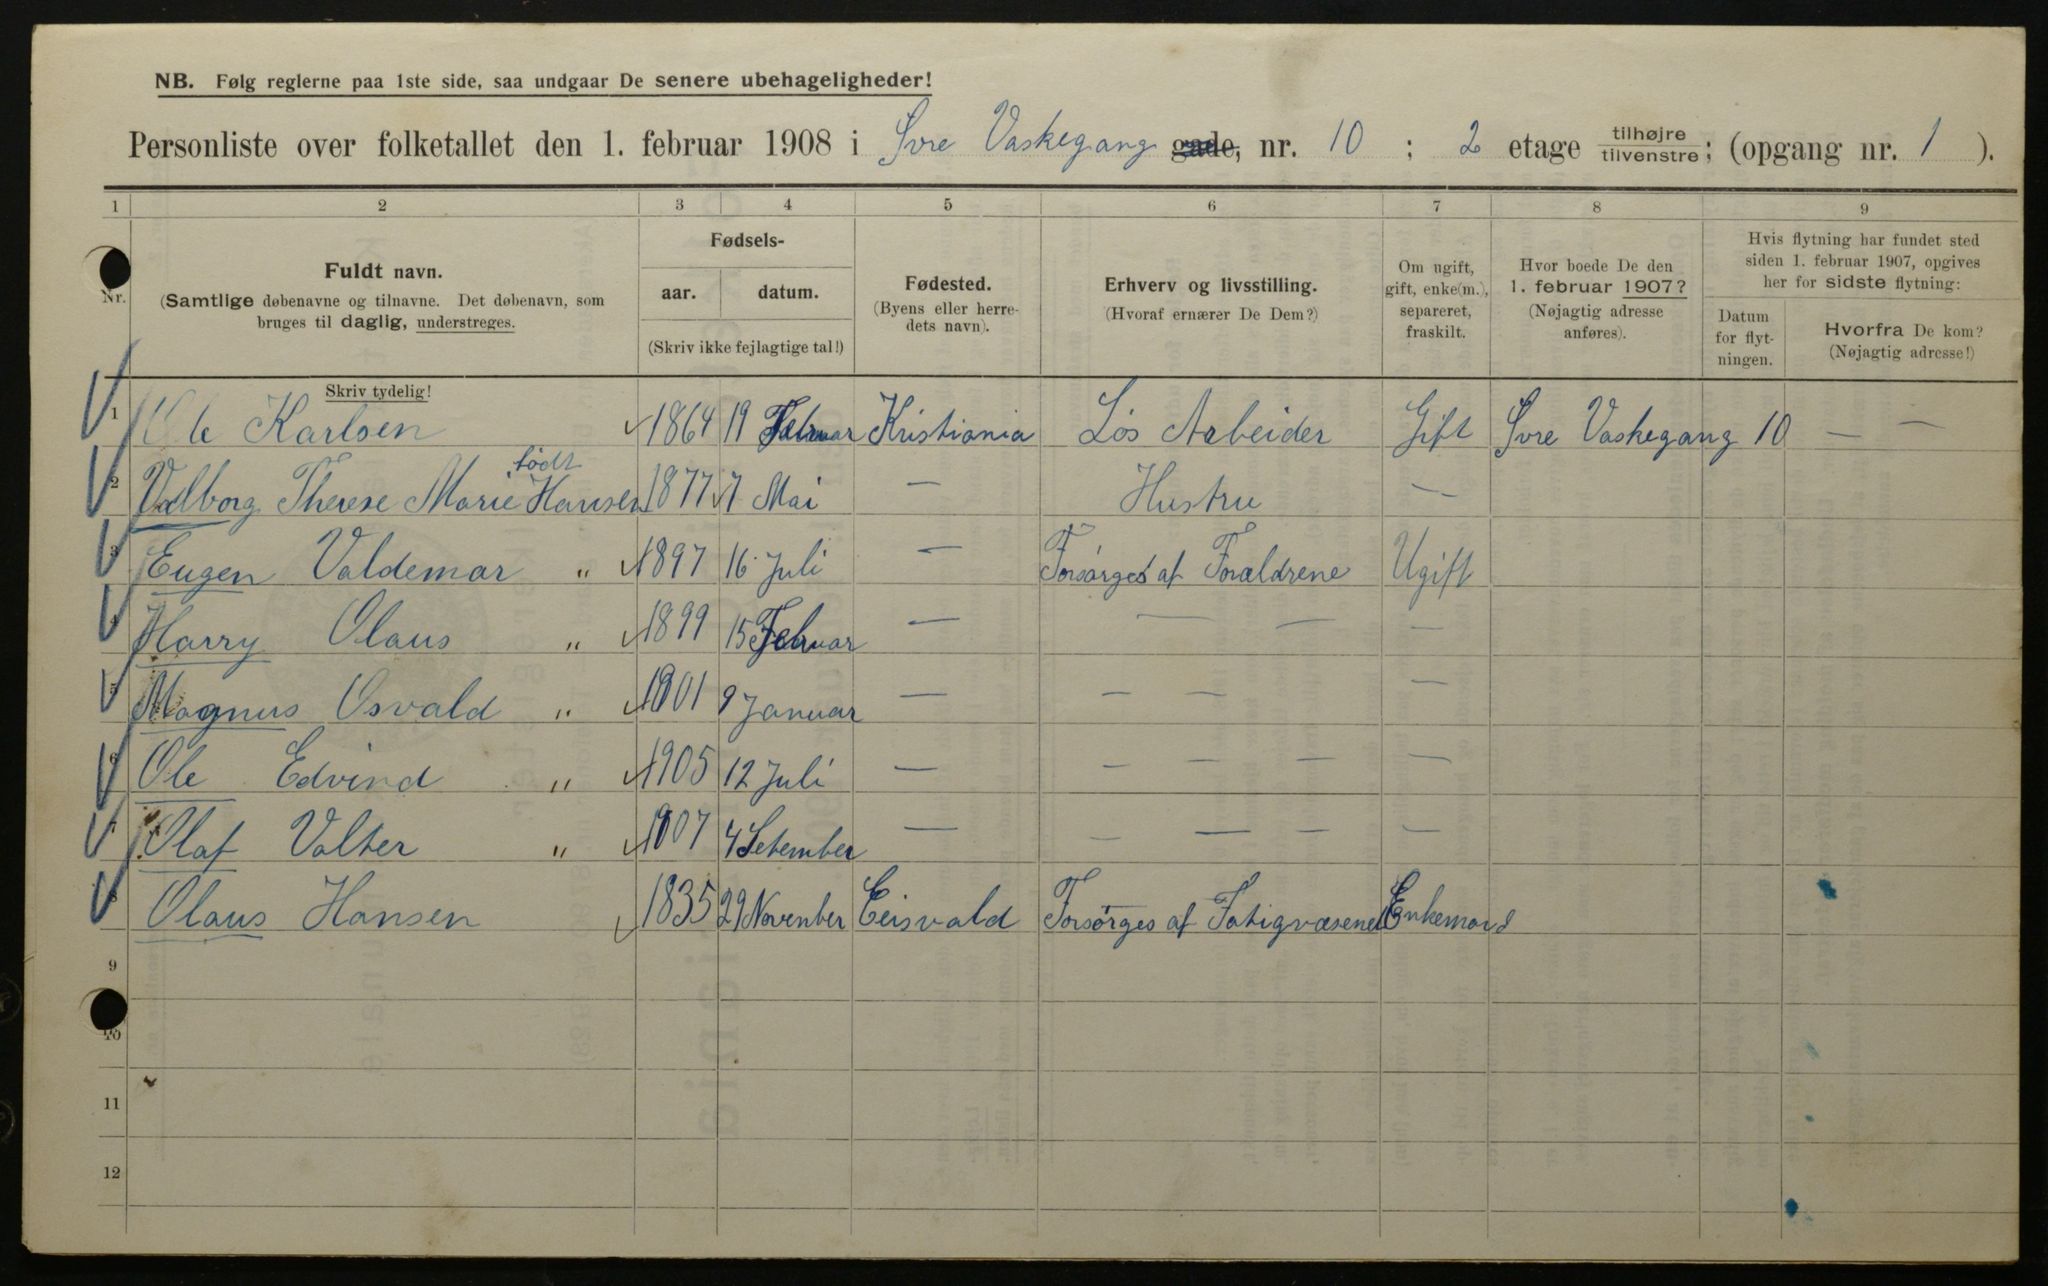 NB. Følg reglerne paa 1ste side, saa undgaar De senere ubehageligheder!
Personliste over folketallet den 1. februar 1908 i Svre Vaskegang gade, nr. 10 ; 2 etage tilhøjre tilvenstre ; (opgang nr. 1 ).
1 2 3 4 5 6 7 8 9
Nr.
Fuldt navn.
(Samtlige døbenavne og tilnavne. Det døbenavn, som
bruges til daglig, understreges.
Skriv tydelig!
Fødsels-
aar. datum.
(Skriv ikke fejlagtige tal!)
Fødested.
(Byens eller herre-
dets navn).
Erhverv og livsstilling.
(Hvoraf ernærer De Dem?)
Om ugift,
gift, enke(m.),
separeret,
fraskilt.
Hvor boede De den
1. februar 1907?
(Nøjagtig adresse
anføres).
Hvis flytning har fundet sted
siden 1. februar 1907, opgives
her for sidste flytning:
Datum
for flyt-
ningen.
Hvorfra De kom?
(Nøjagtig adresse!)
1 Ole Karlsen 1864 19 Februar Kristiania Løs Arbeider Gift Svre Vaskegang 10 — —
født
2 Valborg Therese Marie Hansen 1877 7 Mai — Hustru —
3 Eugen Valdemar „ 1897 16 Juli — Forsørges af Foraldrene Ugift
4 Harry Olaus „ 1899 15 Februar — — — —
5 Magnus Osvald „ 1901 9 Januar — — — —
6 Ole Edvind „ 1905 12 Juli — — — — —
7 Olaf Valter „ 1907 4 Setember — — — — —
8 Olaus Hansen 1835 29 November Eisvald Forsørges af Fatigvæsenet Enkemand
9
10
11
12